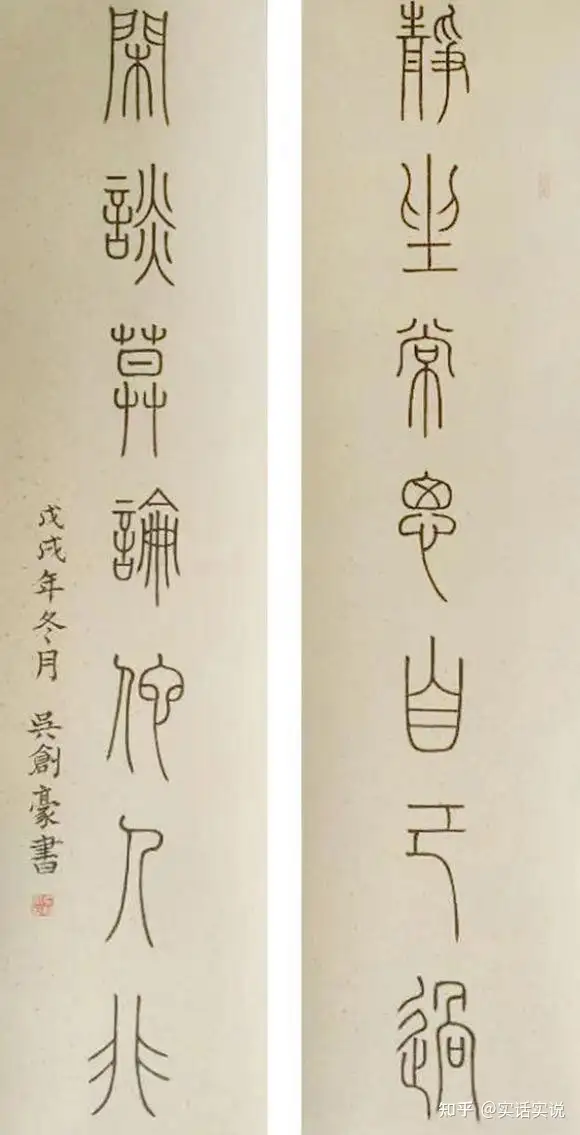 靜坐常思自己過
閑談莫論他人非
戊戌年冬月 吳創豪書
知乎 @实话实说